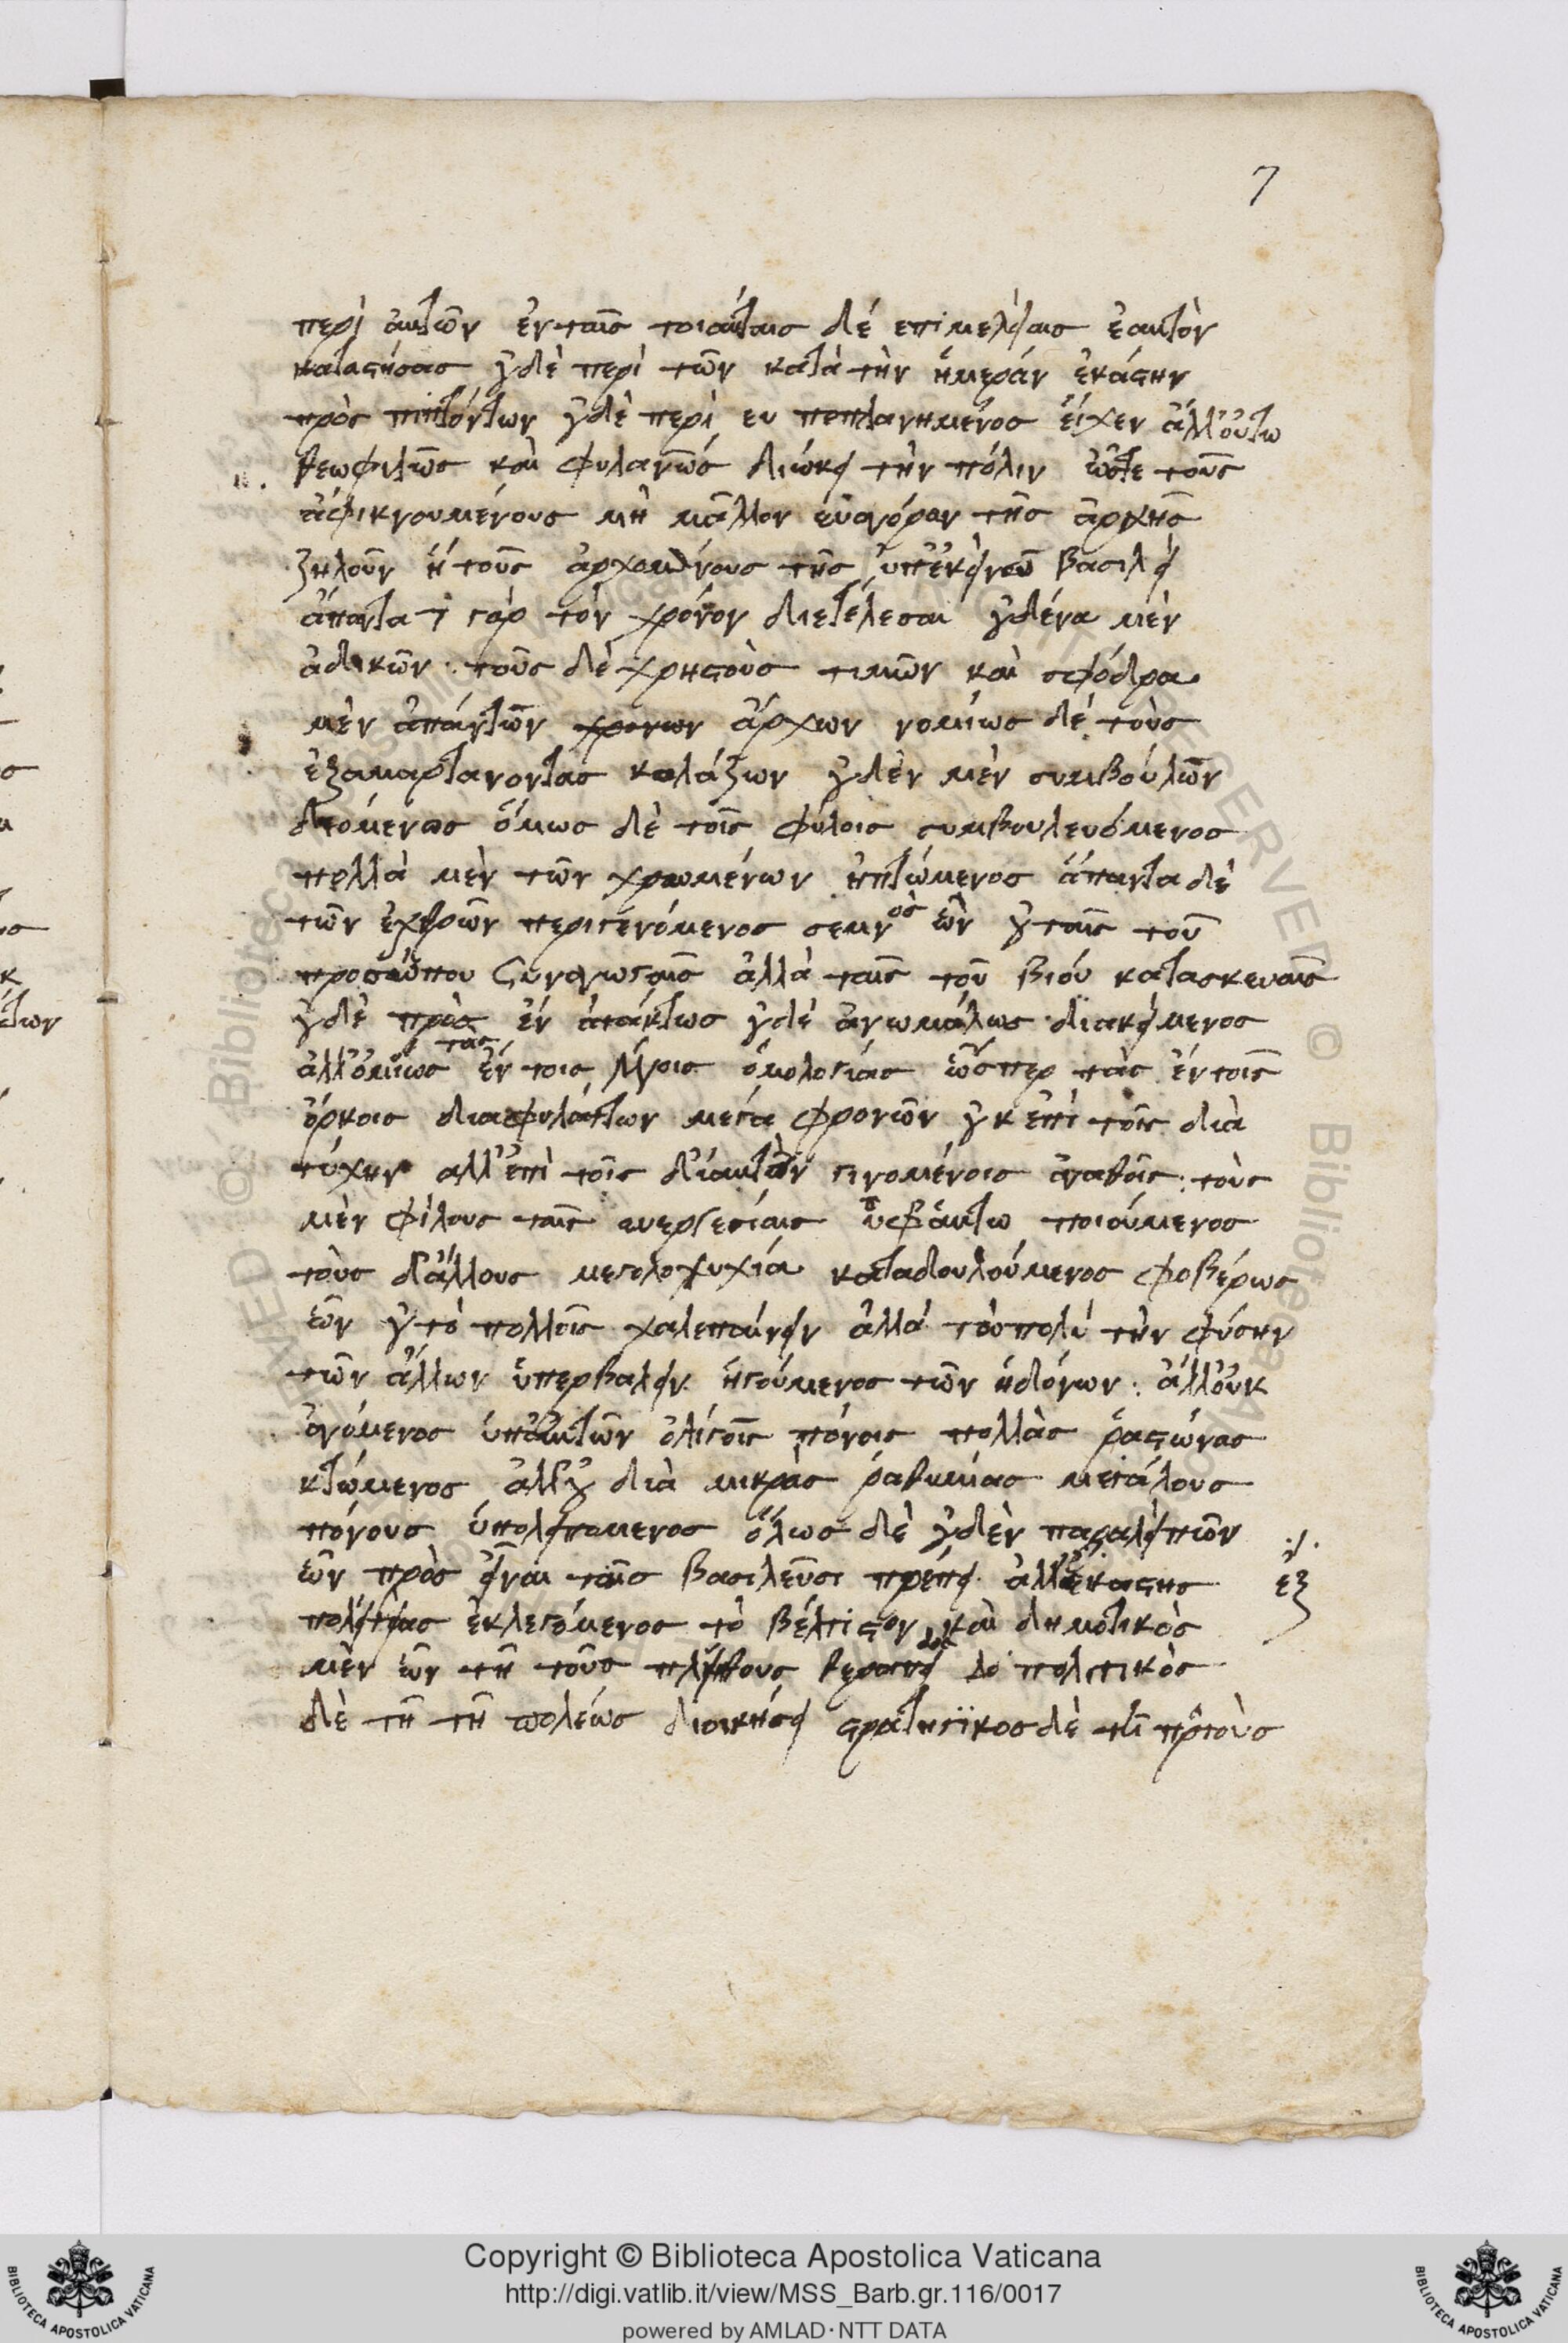 7
περὶ αυτῶν ἐν ταῖς τοιαύταις δέ επιμελείαις ἑαυτὸν
καταστήσας οὐδὲ περὶ τῶν κατὰ τὴν ἡμεράν ἑκάστην
πρὸς πιπτόντων οὐδὲ περὶ ευ πεπλανημένος εἶχεν ἀλλ' οὕτω
θεωφιλῶς καὶ φυλανῶς διώκει τὴν πόλιν ὥστε τοῦς
ἀφικνουμένους μὴ μᾶλλον τῆς ἀρχῆς
ζηλοῦν ἢ τοῦς ἀρχομένους τῆς ὑπ' ἐκείνου βασιλεί
ἅπαντα τ γὰρ τὸν χρόνον διετέλεσαι οὐδένα μὲν
ἀδικῶν · τοῦς δὲ χρηστοὺς τιμῶν καὶ σφόδρα
μὲν ἁπάντων χρονων ἄρχων νομίως δὲ τοὺς
ἐξαμαρτανοντας κολάζων οὐδὲν μὲν συμβούλων
δεόμενος ὅμως δὲ τοῖς φύλοις συμβουλευόμενος
πολλὰ μὲν τῶν χρωμένων ἡττώμενος ἅπαντα δὲ
τῶν ἐχθρῶν περιγενόμενος σεμνὸς ὢν οὐ ταῖς τοῦ
προσώπου συναγωγαῖς ἀλλὰ ταῖς τοῦ βιόυ κατασκευαῖς
οὐδὲ πρὸς ἓν ἀτάκτως οὐδὲ ἀνωμάλως διακείμενος
ἀλλ' ὁμοίως τας ἐν τοις λόγοις ὁμολογίας ὥσπερ τὰς ἐν τοῖς
ὅρκοις διαφυλάττων μέγα φρονῶν οὐκ ἐπὶ τοῖς διὰ
τύχην αλλ' ἐπὶ τοῖς δι' αυτὸν γινομένοις ἀγαθοῖς · τοὺς
μὲν φίλους ταῖς ευεργεσίαις ὑφ' ἑαυτω ποιούμενος
τοὺς δ' ἄλλους μεγαλοψυχία καταδουλούμενος φοβέρως
ὢν οὐ τὸ πολλοῖς χαλεπαίνειν ἀλλὰ τὸ πολὺ τὴν φύσην
τῶν ἄλλων ὑπερβαλειν ἡγούμενος τῶν ἡδόνων · ἀλλ' οὐκ
ἀγόμενος ὑπ' αυτῶν ὀλίγοις πόνοις πολλὰς ῥαστώνας
κτώμενος ἀλλ' οὐ διὰ μικρὰς ῥαθυμίας μεγάλους
πόνους ὑπολειπομενος ὅλως δὲ οὐδὲν παραλείπων
ὢν πρὸς εἶναι ταῖς βασιλεῦσι πρέπει ἀλλ' ἑκάστης ἐξ
πολιτείας ἐκλεγόμενος τὸ βέλτιστον καὶ δημοτικὸς
μὲν ὢν τῆ τοῦς πλήθους θεραπεί δο πολιτικὸς
δὲ τῆ τῆ πολέως διοικήσει στρατηγϊκος δὲ τῆ πρὸ τοὺς
Copyright © Biblioteca Apostolica Vaticana
http://digi.vatlib.it/view/MSS_Barb.gr.116/0017
powered by AMLAD·NTT DATA